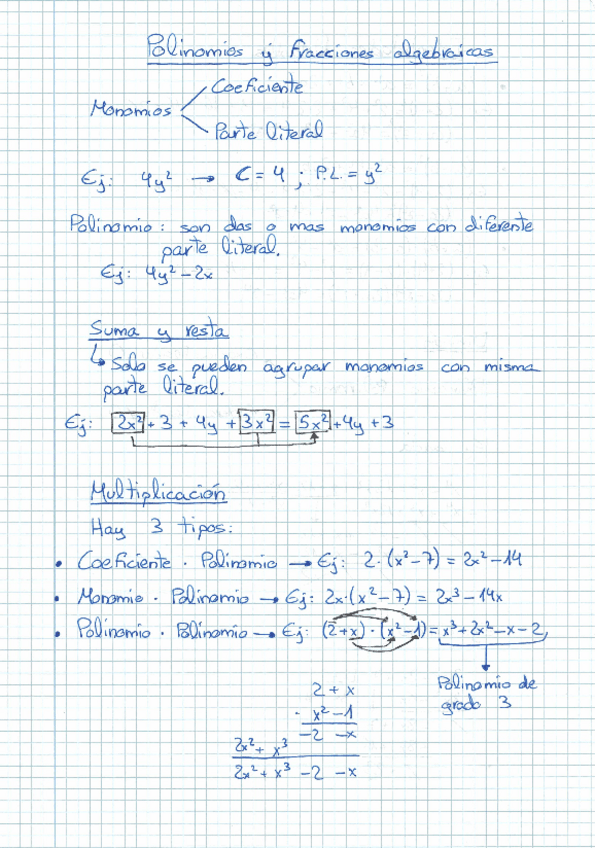 Polinomios y fracciones algebraicas
Coeficiente
Monomios
Parte literal
Ej: 4y² → C = 4 ; P.L. = y²
Polinomio: son das o mas monomios con diferente
parte literal.
Ej: 4y² - 2x
Suma y resta
↳ Solo se pueden agrupar monomios con misma
parte literal.
Ej: 2x² + 3 + 4y + 3x² = 5x² + 4y + 3
Multiplicación
Hay 3 tipos:
• Coeficiente · Polinomio → Ej: 2·(x²-7) = 2x²-14
• Monomio · Polinomio → Ej: 2x·(x²-7) = 2x³-14x
• Polinomio · Polinomio → Ej: (2+x)·(x²-1) = x³+2x²-x-2
Polinomio de
grado 3
2 + x
· x² - 1
-2 -x
2x² + x³
2x² + x³ -2 -x